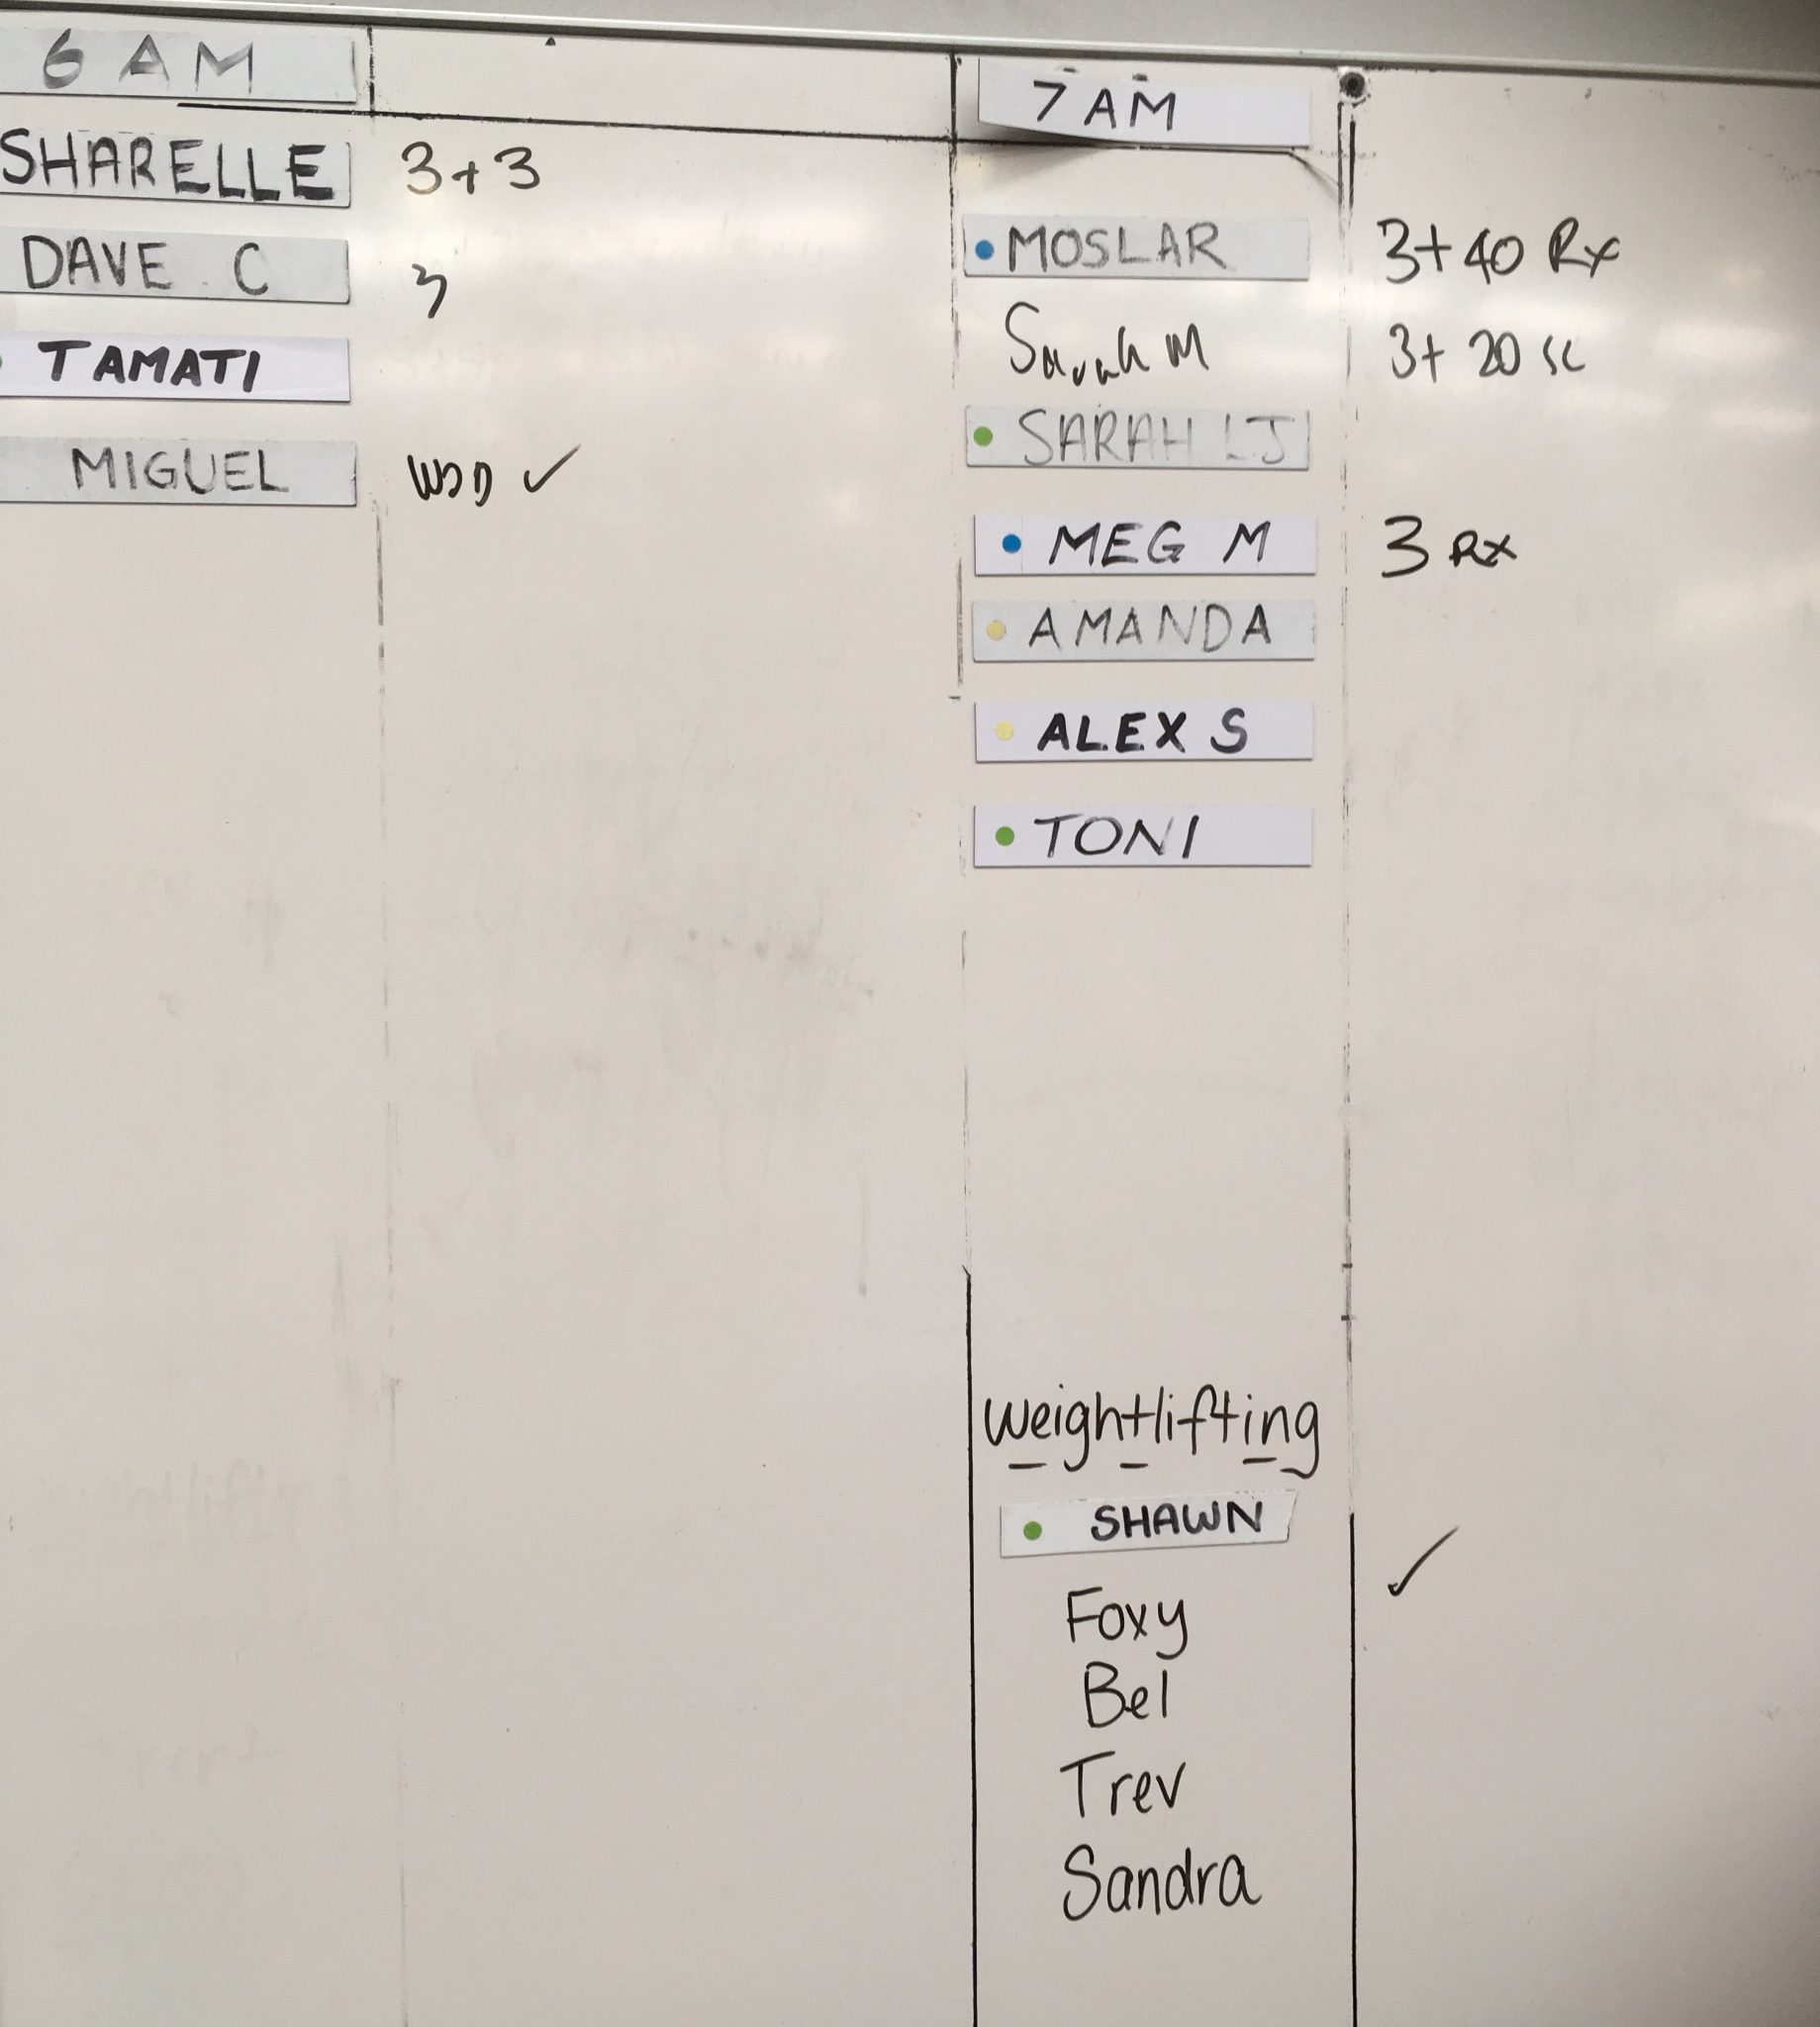 6 AM
SHARELLE 3+3
DAVE C 3
TAMATI
MIGUEL WOD ✓
7 AM
MOSLAR 3+40 Rx
Sarah M 3+ 20 sc
SARAH LJ
MEG M 3 RX
AMANDA
ALEX S
TONI
weightlifting
SHAWN
✓
Foxy
Bel
Trev
Sandra